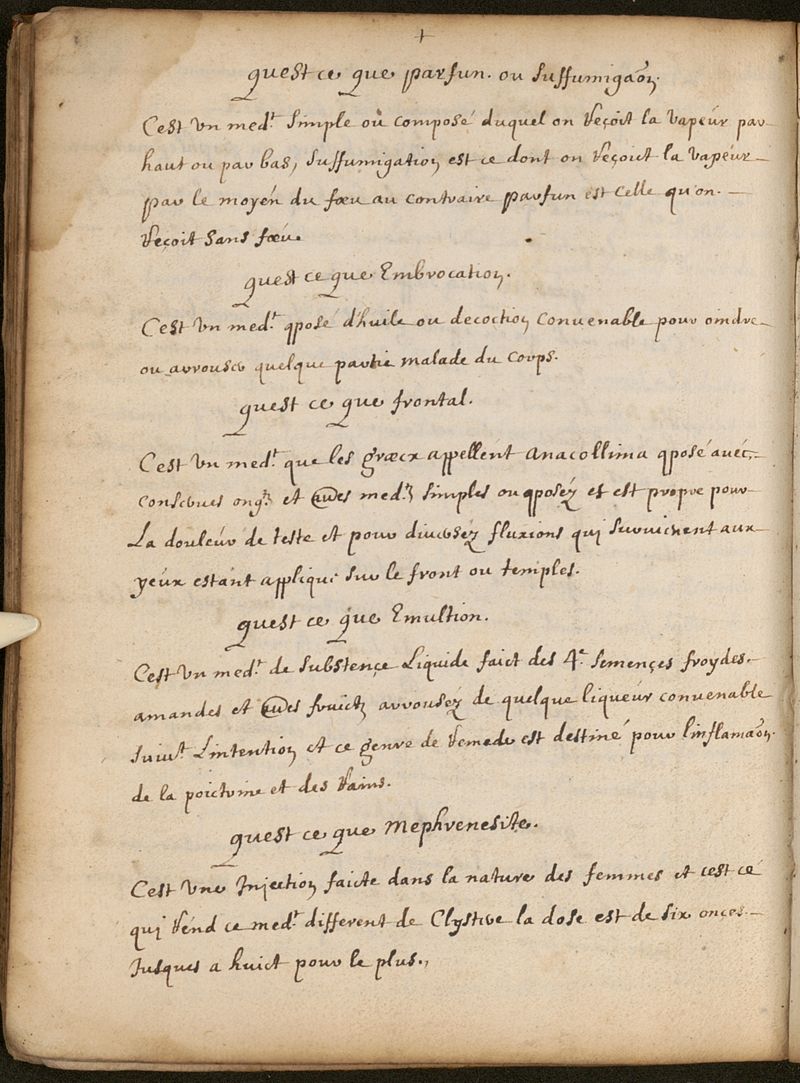 +
quest ce que parfun. ou suffumigaõn.
Cest Vn med.t simple ou composé duquel on reçoit la vapeur par
haut ou par bas, suffumigation est ce dont on reçoict la vapeur
par le moyen du fœu au contraire parfun est celle qu'on.
reçoit sans fœu.
quest ce que Embrocation.
Cest Vn med.t qposé d'huile ou decoction convenable pour oindre
ou arrouser quelque partie malade du corps.
quest ce que frontal.
Cest Vn med.t que les græcx appellent anacollima qposé avec
conserves ong.ts et med.ts simples ou qposez et est propre pour
La douleur de teste et pour diversez fluxions qui surviennent aux
yeux estant appliqué sur le front ou temples.
quest ce que Emultion.
Cest Vn med.t de substençe Liquide faict des 4.e semençes froydes.
amandes et fruictz arrousez de quelque liqueur convenable
suiv.t L'intention et ce genre de remede est destiné pour l'inflamaõn.
de la poictrine et des rains.
quest ce que Mephrenesite.
Cest Vne Injection faicte dans la nature des femmes et cest ce
qui rend ce med.t different de Clystere la dose est de six onces
Jusques a huict pour le plus.,